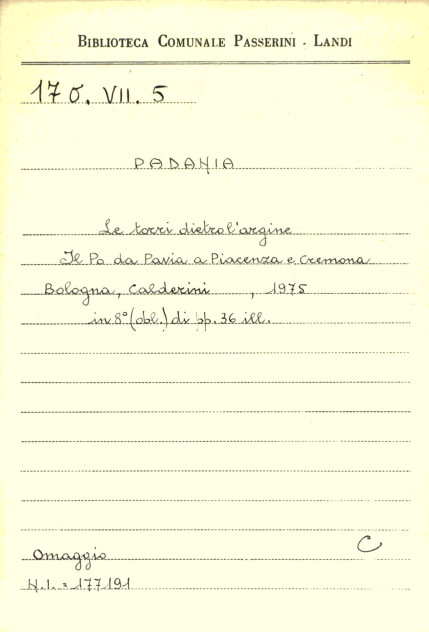 BIBLIOTECA COMUNALE PASSERINI - LANDI
17 σ. VII. 5
PADANIA
Le torri dietro l'argine
Il Po da Pavia a Piacenza e Cremona
Bologna, Calderini , 1975
in 8° (obl.) di pp. 36 ill.
C
Omaggio
N.I. = 177191